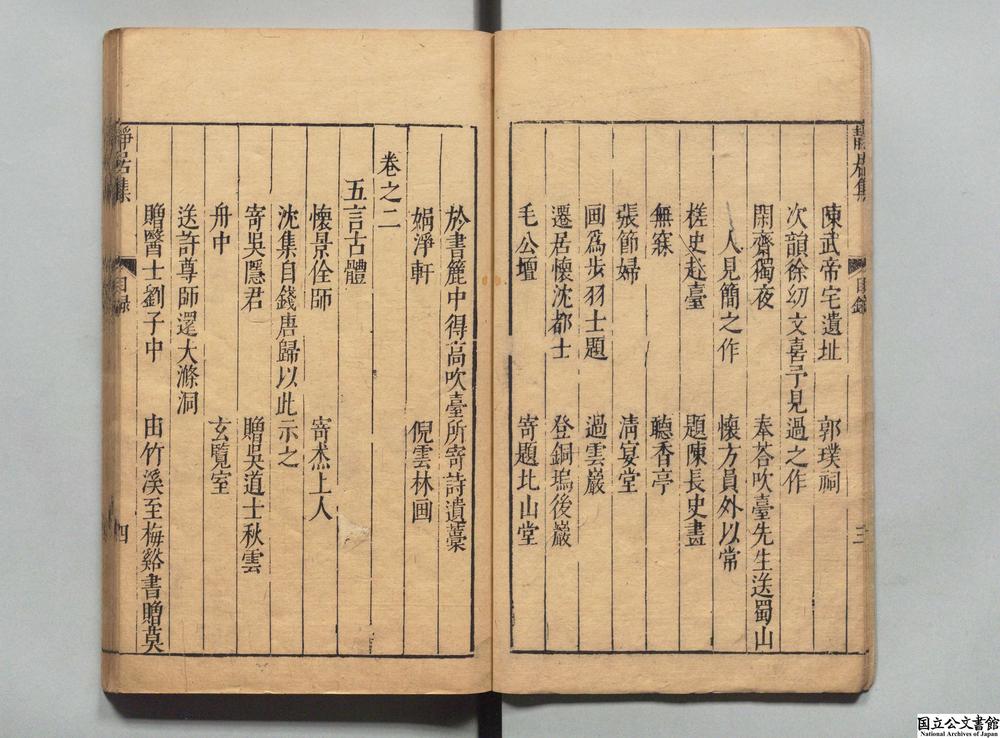 靜居集
目錄
三
陳武帝宅遺址 郭璞祠
次韻徐幼文喜予見過之作
閑齋獨夜 奉荅吹臺先生送蜀山
人見簡之作 懷方員外以常
槎史赴臺 題陳長史畫
無寐 聽香亭
張節婦 清宴堂
画爲步羽士題 過雲巖
遷居懷沈都士 登銅塢後巖
毛公壇 寄題北山堂
於書簏中得高吹臺所寄詩遺藁
娟淨軒 倪雲林画
卷之二
五言古體
懷景佺師 寄杰上人
沈集自錢唐歸以此示之
寄吳隱君 贈吳道士秋雲
舟中 玄覽室
送許尊師還大滌洞
贈醫士劉子中 由竹溪至梅谿書贈莫
靜居集
目錄
四
国立公文書館
National Archives of Japan